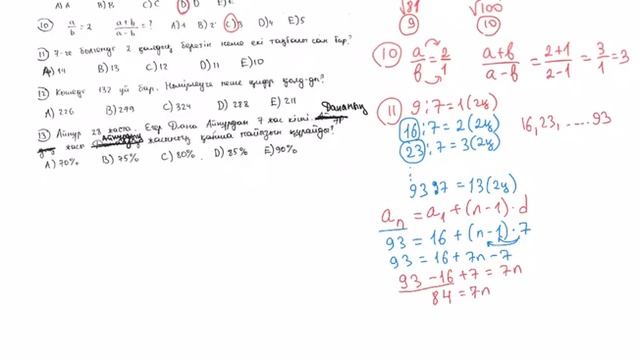 A) A B) B C) C D) D E) E
10) a/b = 2 (a+b)/(a-b) = ? A) 1 B) 2 C) 3 D) 4 E) 5
11) 7-ге бөлгенде 2 қалдық беретін неше екі таңбалы сан бар?
A) 14 B) 13 C) 12 D) 11 E) 10
12) Көшеде 132 үй бар. Нөмірлеуге неше цифр қолд-ды?
A) 226 B) 299 C) 324 D) 288 E) 211
13) Айнұр 28 жаста. Егер Дана Айнұрдан 7 жас кіші
Дананың жасы жасының қанша пайызын құрайды?
A) 70% B) 75% C) 80% D) 85% E) 90%
√81 √100
9 10
10) a/b = 2/1 (a+b)/(a-b) = (2+1)/(2-1) = 3/1 = 3
11) 9 : 7 = 1 (2қ)
16 : 7 = 2 (2қ) 16, 23, ..... 93
23 : 7 = 3 (2қ)
93 : 7 = 13 (2қ)
aₙ = a₁ + (n-1) · d
93 = 16 + (n-1) · 7
93 = 16 + 7n - 7
93 - 16 + 7 = 7n
84 = 7n